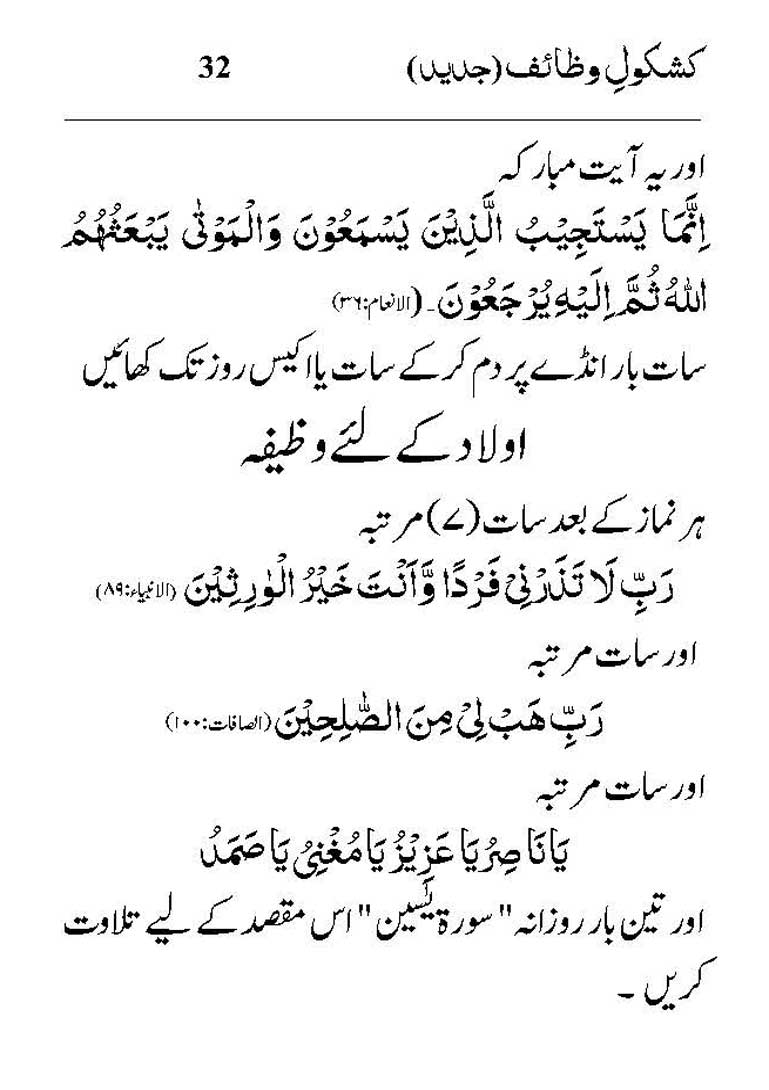 کشکولِ وظائف (جدید) 32
اور یہ آیت مبارکہ
اِنَّمَا يَسْتَجِيْبُ الَّذِيْنَ يَسْمَعُوْنَ وَالْمَوْتٰى يَبْعَثُهُمُ
اللهُ ثُمَّ اِلَيْهِ يُرْجَعُوْنَ۔ (الانعام:۳۶)
سات بار انڈے پر دم کر کے سات یا اکیس روز تک کھائیں
اولاد کے لئے وظیفہ
ہر نماز کے بعد سات (۷) مرتبہ
رَبِّ لَا تَذَرْنِيْ فَرْدًا وَّاَنْتَ خَيْرُ الْوٰرِثِيْنَ (الانبیاء:۸۹)
اور سات مرتبہ
رَبِّ هَبْ لِيْ مِنَ الصّٰلِحِيْنَ (الصافات:۱۰۰)
اور سات مرتبہ
يَا نَاصِرُ يَا عَزِيْزُ يَا مُغْنِيُ يَا صَمَدُ
اور تین بار روزانہ "سورۃ یٰسین" اس مقصد کے لیے تلاوت
کریں ۔